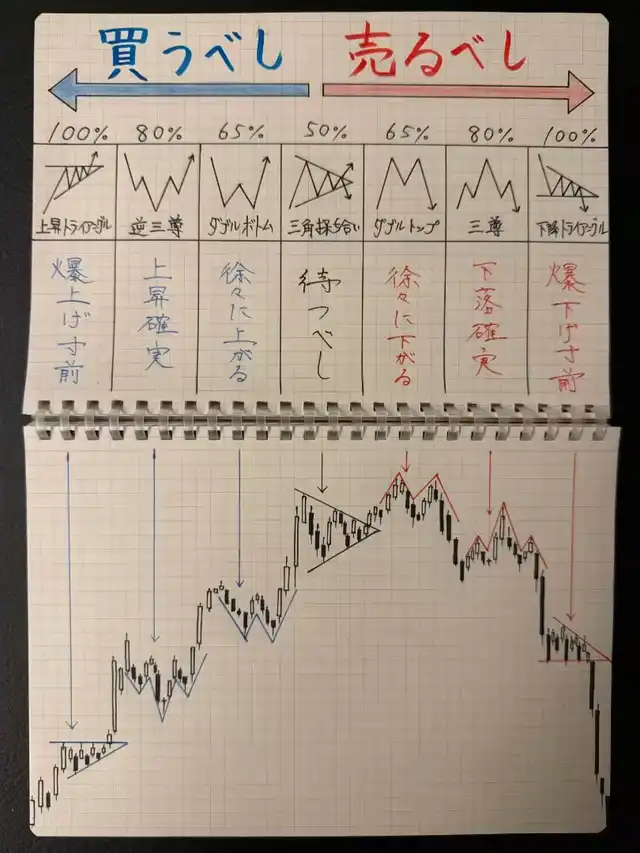 買うべし 売るべし
100% 80% 65% 50% 65% 80% 100%
上昇トライアングル 逆三尊 ダブルボトム 三角採み合い ダブルトップ 三尊 下降トライアングル
爆上げ寸前
上昇確実
徐々に上がる
待つべし
徐々に下がる
下落確実
爆下げ寸前